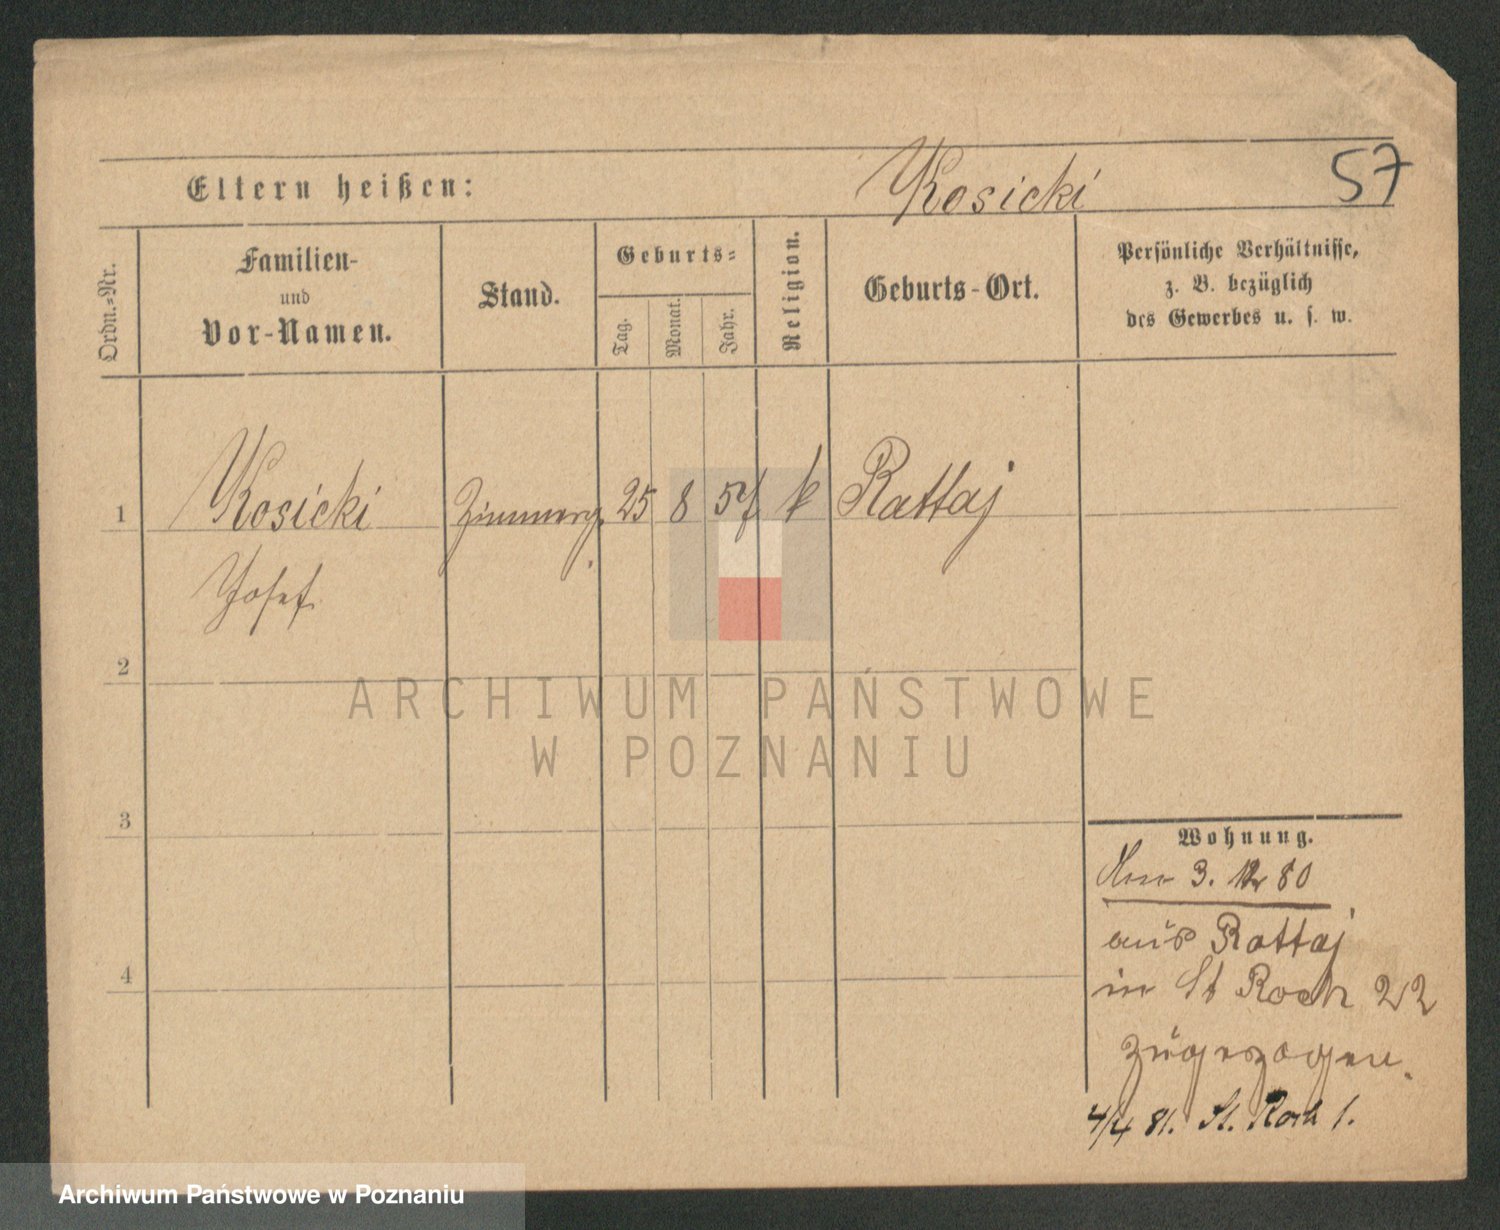 Eltern heißen:
Kosicki
57
Ordn.-Nr.
Familien-
und
Vor-Namen.
Stand.
Geburts-
Tag.
Monat.
Jahr.
Religion.
Geburts-Ort.
Persönliche Verhältnisse,
z. B. bezüglich
des Gewerbes u. s. w.
1
Kosicki
Zimmerg.
25
8
57
k
Rattaj
Josef
2
ARCHIWUM PAŃSTWOWE
W POZNANIU
3
Wohnung.
3. 12 80
aus Rattaj
in St Roch 22
zugezogen.
4
4/4 81. St. Roch 1.
Archiwum Państwowe w Poznaniu